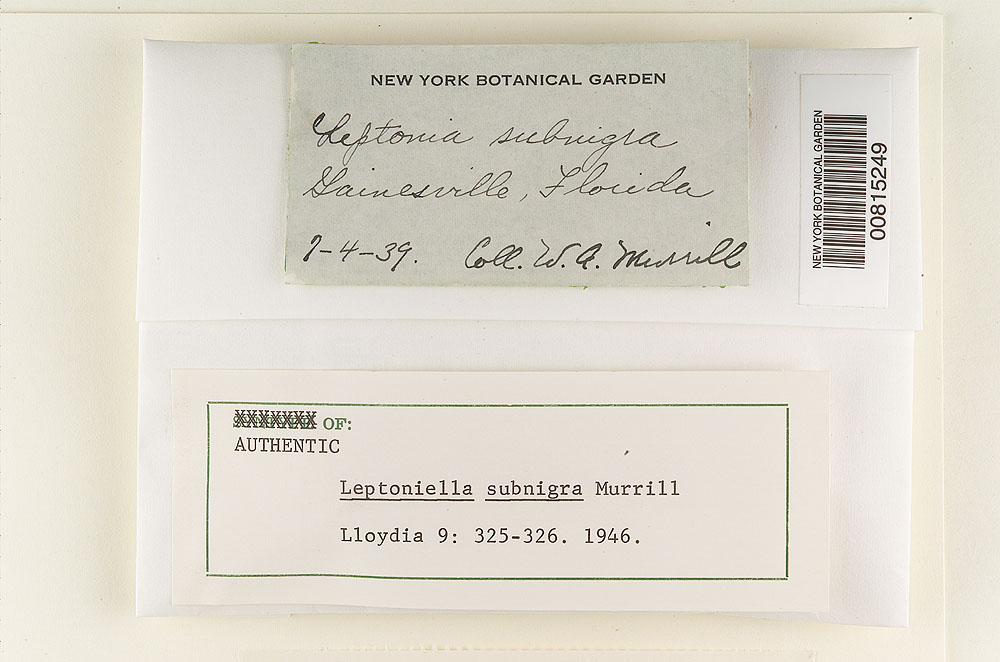 NEW YORK BOTANICAL GARDEN
Leptonia subnigra
Gainesville, Florida
7-4-39. Coll. W. A. Murrill
NEW YORK BOTANICAL GARDEN
00815249
OF:
AUTHENTIC
Leptoniella subnigra Murrill
Lloydia 9: 325-326. 1946.